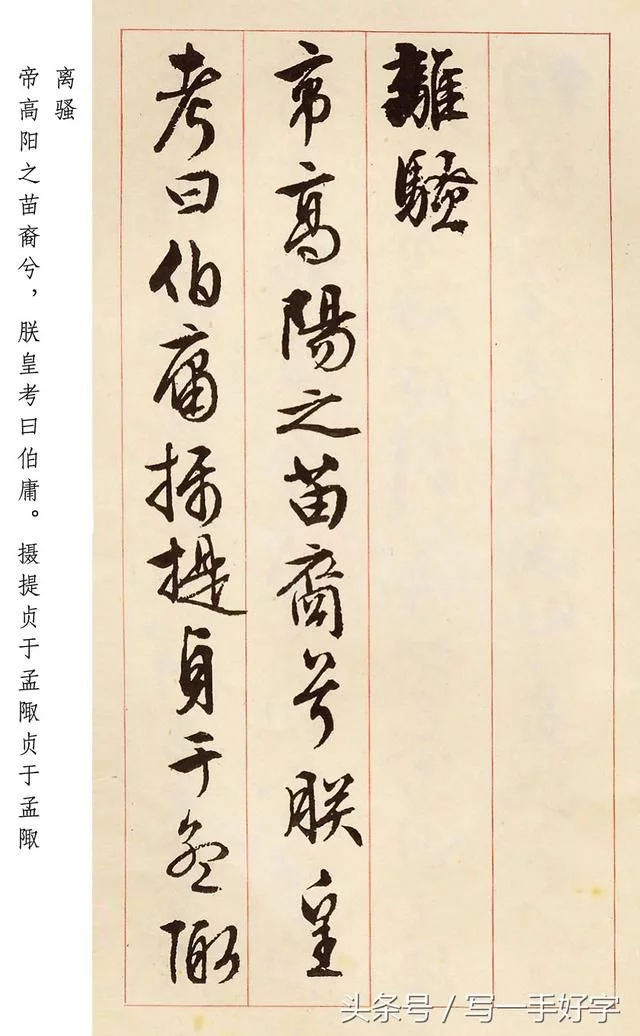 離騷
帝高陽之苗裔兮朕皇
考曰伯庸攝提貞于孟陬
离骚
帝高阳之苗裔兮，朕皇考曰伯庸。摄提贞于孟陬贞于孟陬
头条号 / 写一手好字